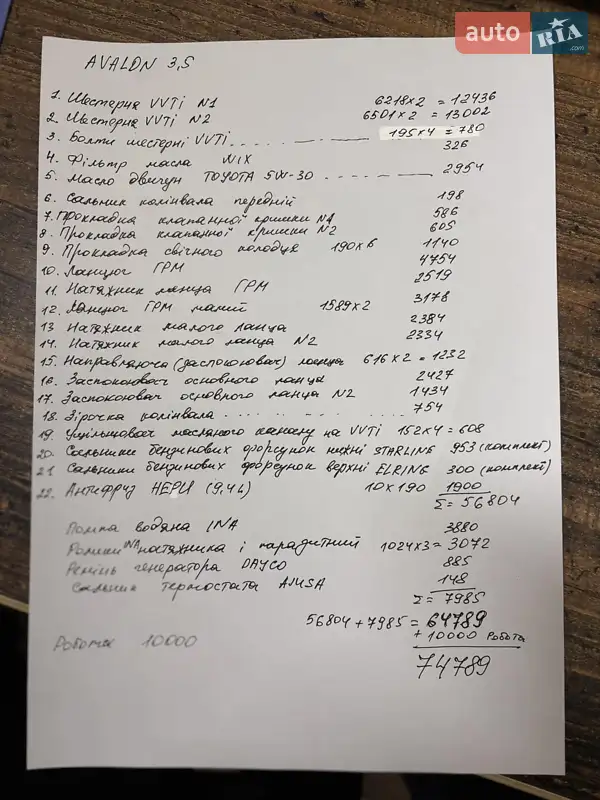 auto RIA .com
AVALON 3,5
1. Шестерня VVTi N1 6218x2 = 12436
2. Шестерня VVTi N2 6501x2 = 13002
3. Болти шестерні VVTi 195x4 = 780
4. Фільтр масла WIX 326
5. Масло двигун TOYOTA 5W-30 2954
6. Сальник колінвала передній 198
7. Прокладка клапанної кришки N1 586
8. Прокладка клапанної кришки N2 605
9. Прокладка свічного колодця 190x6 1140
10. Ланцюг ГРМ 4754
11. Натяжник ланца ГРМ 2519
12. Ланцюг ГРМ малий 1589x2 3178
13 Натяжник малого ланца 2384
14. Натяжник малого ланца N2 2334
15. Направляюча (заспокоювач) ланца 616x2 = 1232
16. Заспокоювач основного ланца 2427
17. Заспокоювач основного ланца N2 1434
18. Зірочка колінвала 754
19. Ущільнювач масляного каналу на VVTi 152x4 = 608
20. Сальники бензинових форсунок нижні STARLINE 953 (комплект)
21 Сальники бензинових форсунок верхні ELRING 300 (комплект)
22. Антифриз HEPU (9,4L) 10x190 1900
Σ = 56804
Помпа водяна INA 3880
Ролики INA натяжника і парадитний 1024x3 = 3072
Ремінь генератора DAYCO 885
Сальник термостата AJUSA 148
Σ = 7985
56804 + 7985 = 64789
+ 10000 Робота
Робота 10000
74789